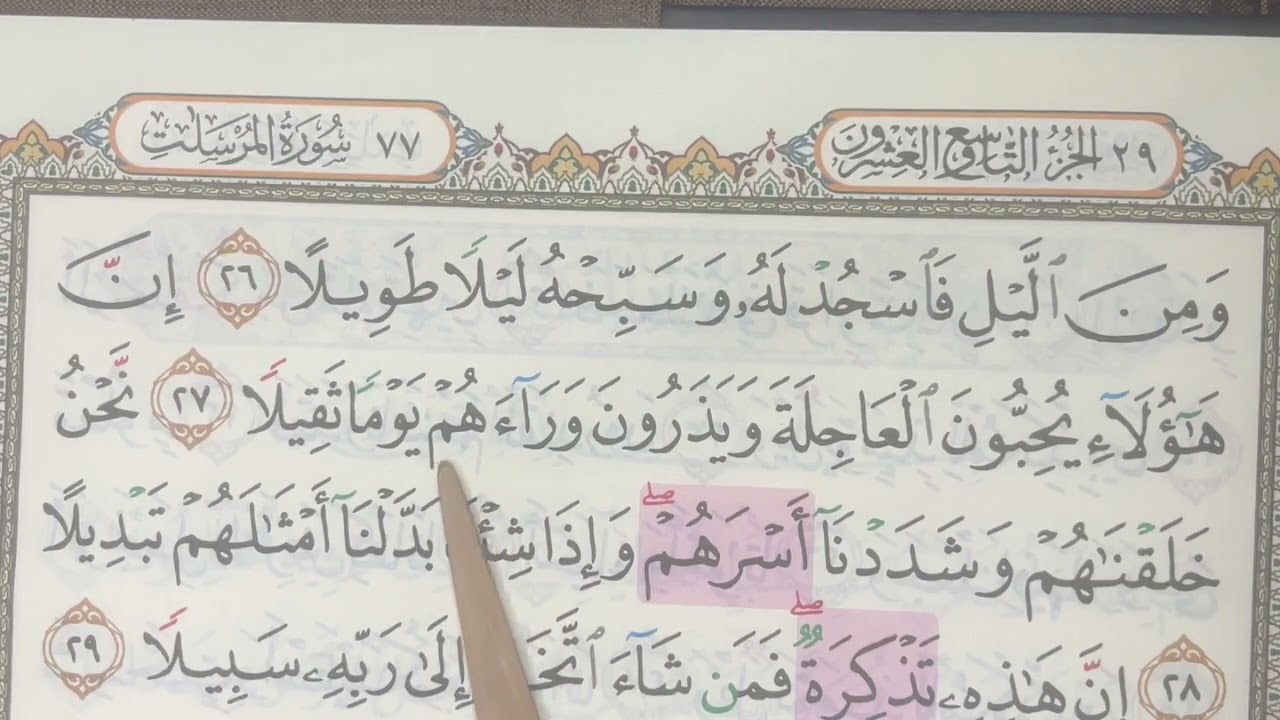 ٢٩ الجُزْءُ التَّاسِعُ العِشْرُونَ
٧٧ سُورَةُ المُرْسَلَاتِ
وَمِنَ ٱلَّيْلِ فَٱسْجُدْ لَهُۥ وَسَبِّحْهُ لَيْلًا طَوِيلًا ٢٦ إِنَّ
هَٰٓؤُلَآءِ يُحِبُّونَ ٱلْعَاجِلَةَ وَيَذَرُونَ وَرَآءَهُمْ يَوْمًا ثَقِيلًا ٢٧ نَّحْنُ
خَلَقْنَٰهُمْ وَشَدَدْنَآ أَسْرَهُمْ ۖ وَإِذَا شِئْنَا بَدَّلْنَآ أَمْثَٰلَهُمْ تَبْدِيلًا
٢٨ إِنَّ هَٰذِهِۦ تَذْكِرَةٌ ۖ فَمَن شَآءَ ٱتَّخَذَ إِلَىٰ رَبِّهِۦ سَبِيلًا ٢٩